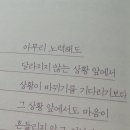 아무리 노력해도
달라지지 않는 상황 앞에서
상황이 바뀌기를 기다리기보다
그 상황 앞에서도 마음이
흔들리지 않고